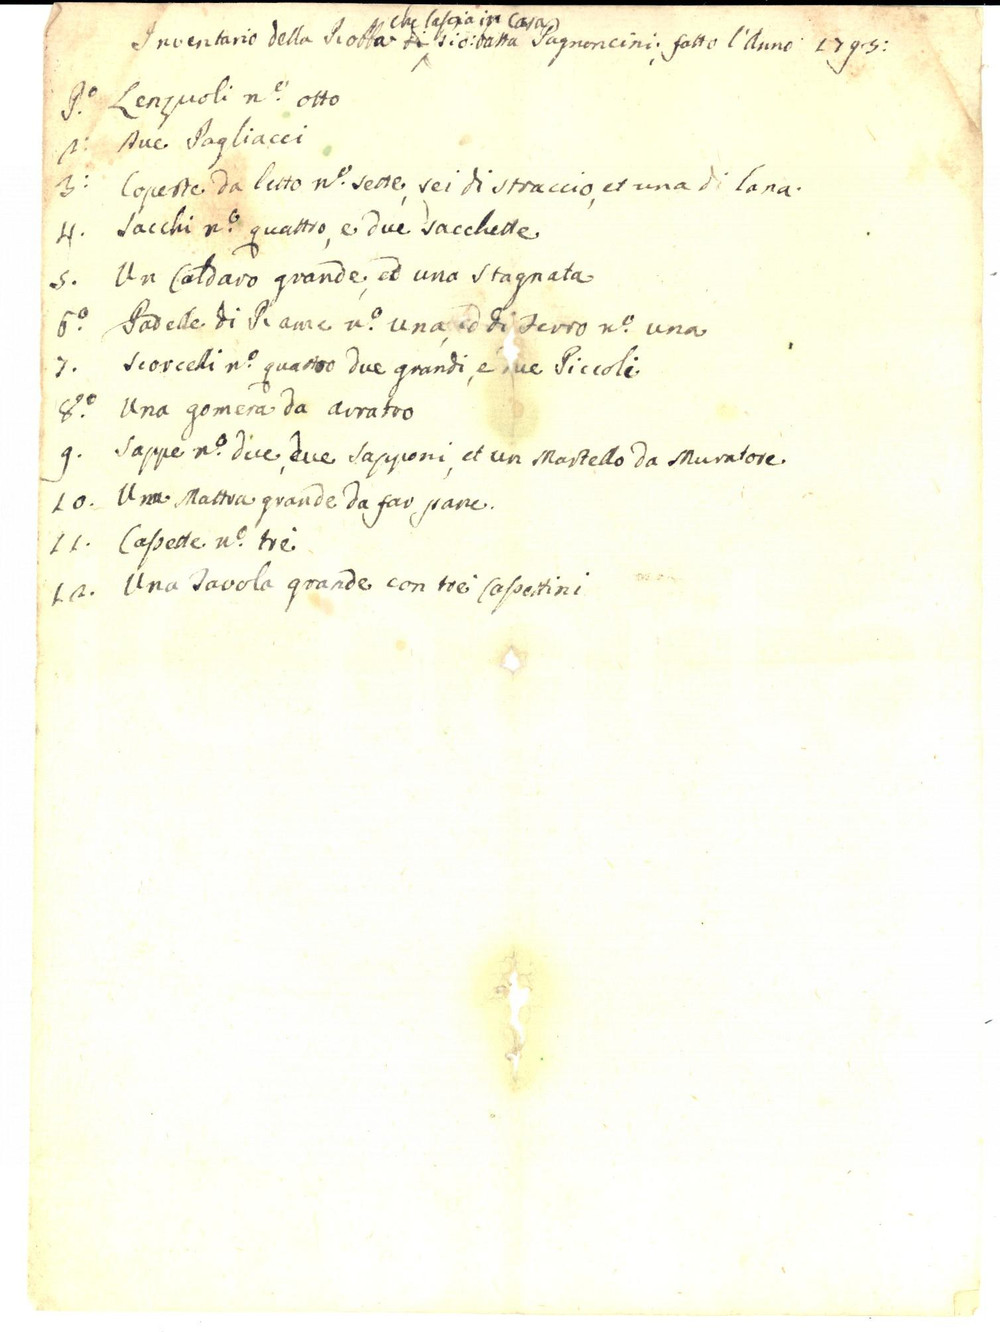 che lascia in Casa
Inventario della Robba di Gio: batta Pagnoncini, fatto l'Anno 1793:
P.º Lenzuoli n.º otto
2: Due Pagliacci
3: Coperte da letto n.º sette, sei di straccio, et una di lana.
4. Sacchi n.º quattro, e due sacchette
5. Un Caldaro grande, et una Stagnata
6º Padelle di Rame n.º una, ed di Ferro n.º una
7. Scorcelli n.º quattro due grandi, e due Piccoli
8.º Una gomera da arratro
9. Sappe n.º due, due Sapponi, et un Martello da Muratore.
10. Una Mattra grande da far pane.
11. Cassette n.º trei
12. Una Tavola grande con trei Cassettini